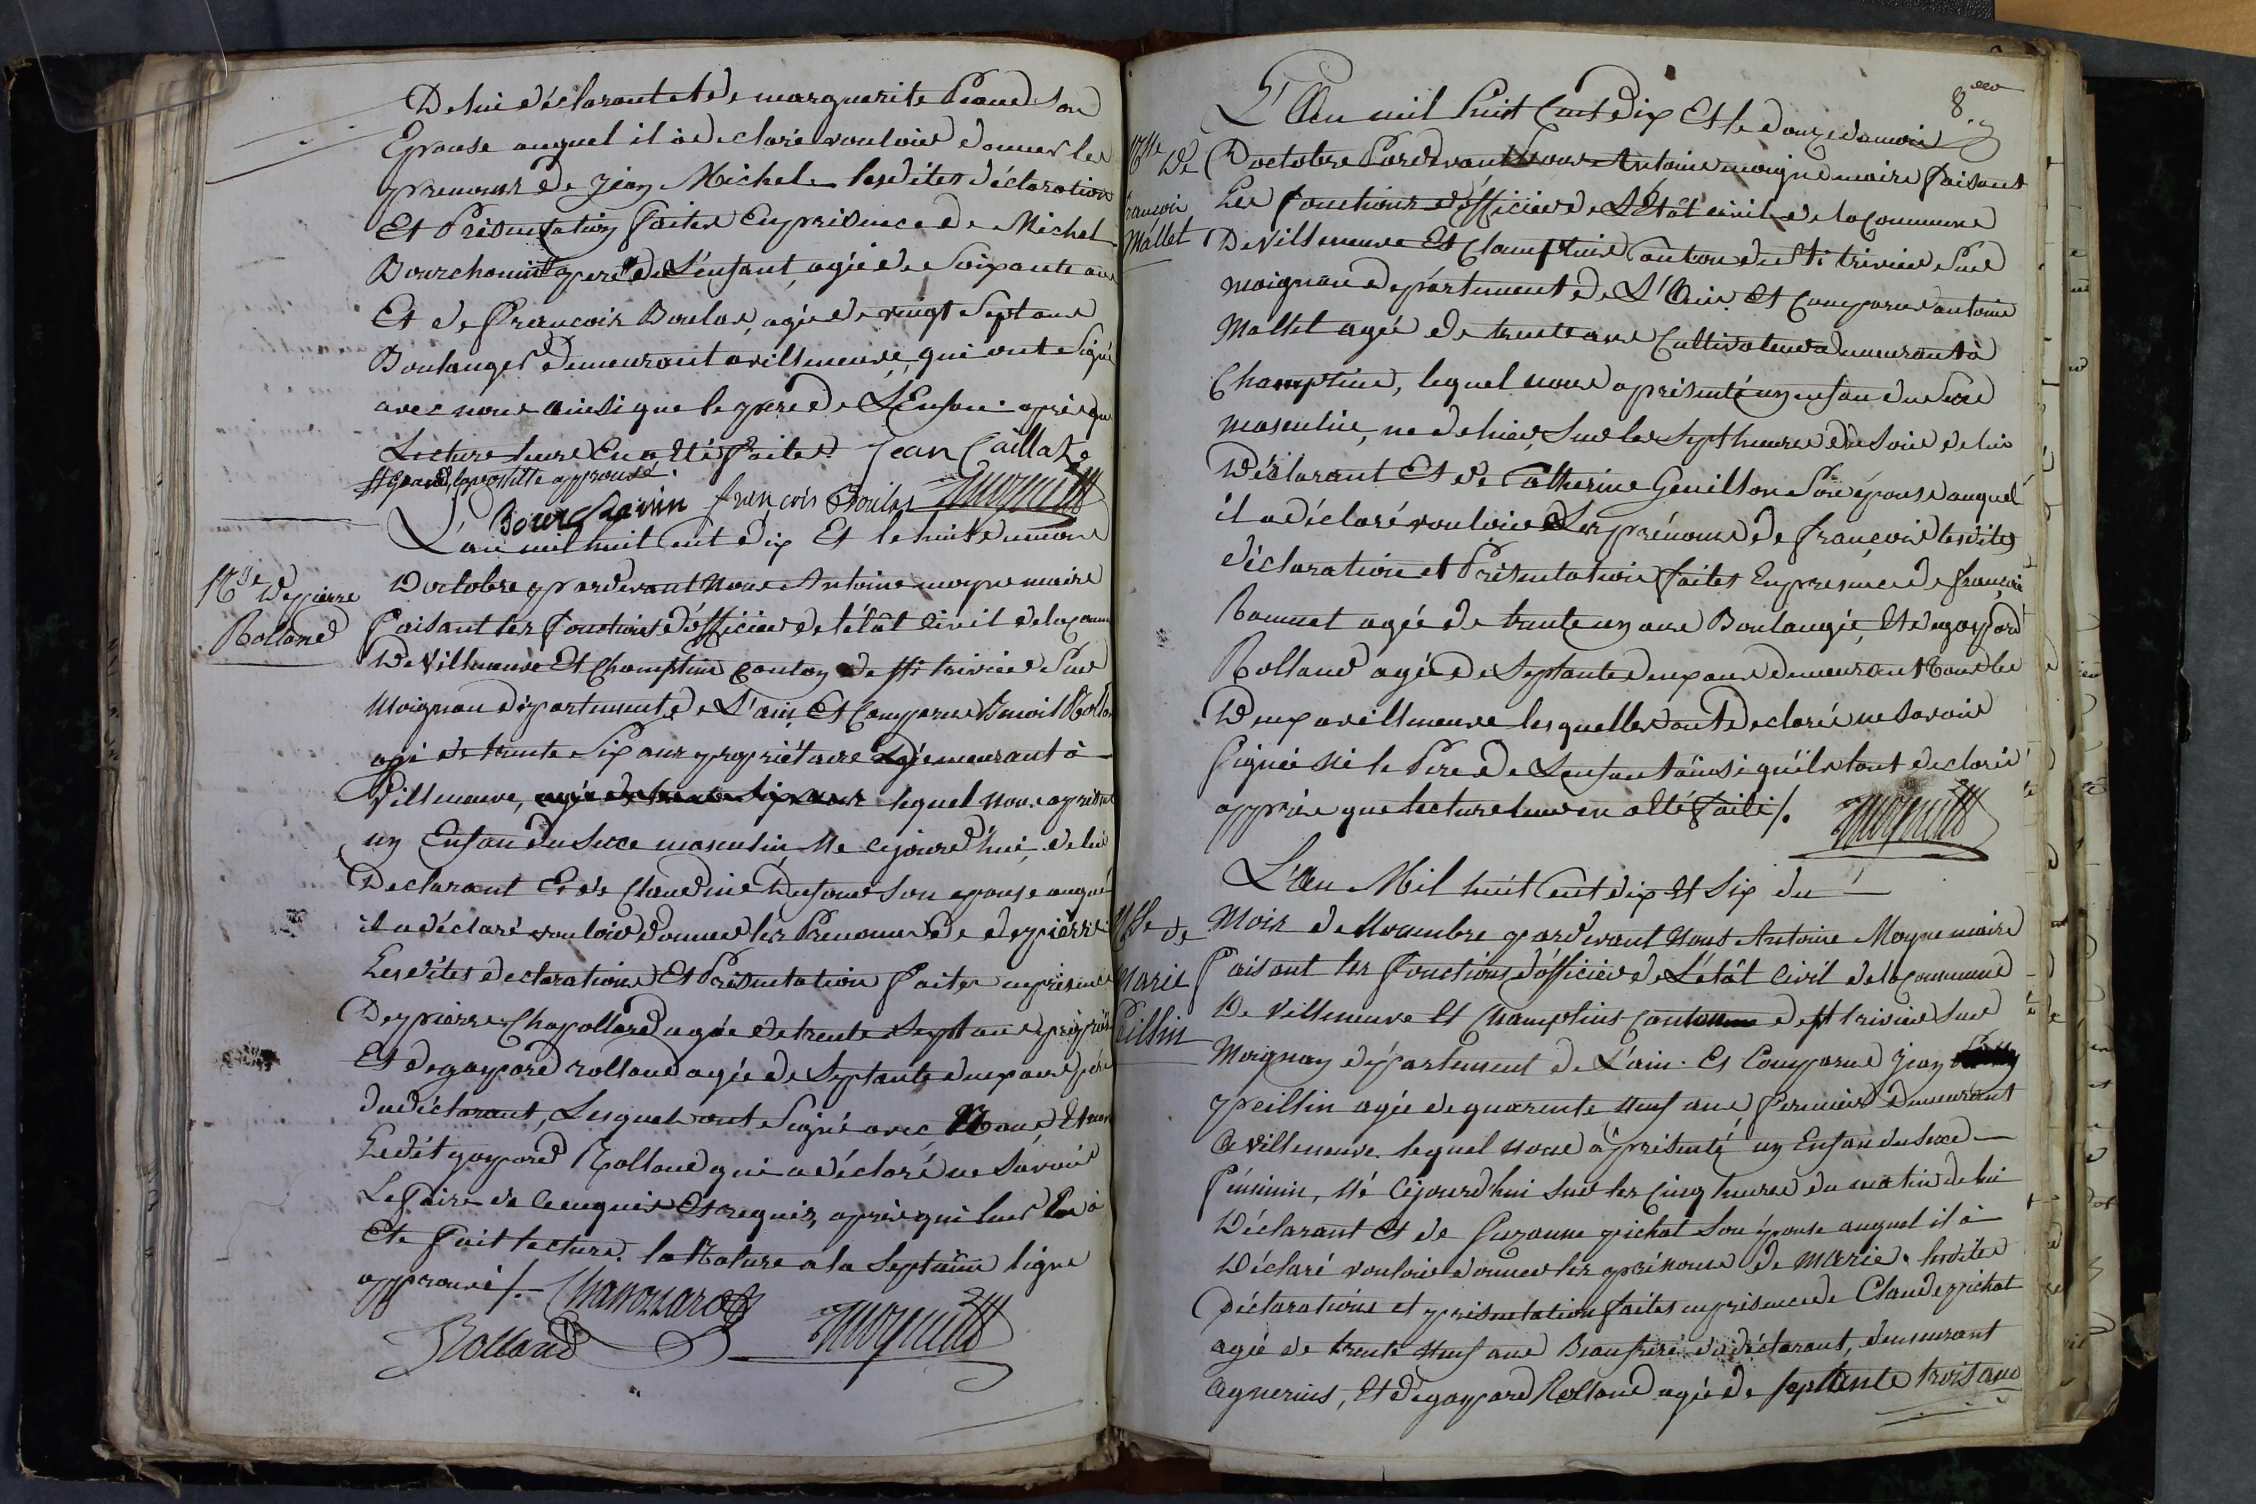 De lui déclarant et de marguerite son
Epouse auquel il à declaré vouloir donner les
prenoms de jean Michel lesdites déclaration
Et Présentation faites En présence de Michel
pere de L'enfant, agée de Soixante ans
Et de francois Boulas, agée de vingt Sept ans
Boulanger Demeurant a villeneuve, qui ont Signé
avec nous ainsi que le pere de L'Enfan. après que
Lecture leurs En a Eté faites. Jean Caillat
grand, apostille approuvé.
françois Boulas
L'an mil huit Cent dix Et le huit du mois
Nce De pierre
Rolland
D'octobre pardevant Nous Antoine moyne maire
faisant les fonctions d'officier de l'état Civil de la comm
De Villeneuve Et Champtin canton de St trivier Sur
Moignan département de L'ain, Et Comparu Benoit Rollan
agé de trente Six ans propriétaire Demeurant à
Villeneuve, agée de trente Six ans lequel Nous a présenté
un Enfan du Sexe masculin, Né cejourd'hui, de lui
Declarant Et de Claudine Dufour son epouse auquel
il a déclaré vouloir donner les Prenoms de de pierre
Lesdites declarations Et Présentation faites en présence
De pierre Chapollard agée de trente Sept ans
Et de gaspard rolland agée de Septante deux ans père
du déclarant, Lesquels ont Signé avec Nous Et non
Ledit gaspard Rolland qui a déclaré ne Savoir
Le faire de ce enquis Et requis, après qui leur En à
Eté fait lecture. la Rature a la Septaime ligne
approuvé /.
Rolland
8.eme
L'An mil huit Cent dix Et le douze du mois
Nsse De
francois
Mallet
D'octobre Pardevant Nous Antoine moigne maire faisant
Les fonctions d'officier de L'Etât civil de la Commune
De Villeneuve Et Champtein Canton de St trivier Sur
moignan département de L'Ain Et Comparu antoine
Mallet agée de trente ans Cultivateur demeurant à
Champtein, lequel nous a présenté un enfan du Sexe
masculin, ne de hier, Sur les Sept heures du Soir de lui
Déclarant Et de Catherine Genillon Son épouse auquel
il a déclaré vouloir Les prénoms de françois lesdites
déclaration et Présentation faites En presence de françois
Bonnet agée de trente un ans Boulangé, Et de gaspard
Rolland agée de Septante deux ans demeurant tous les
Deux a villeneuve lesquelles ont Declarée ne Savoir
Signée ni le Pere de L'enfant ainsi qu'ils l'ont declarée
apprès que lecture leur en a Eté faite /.
L'An Mil huit Cent dix Et Six du
Nsse de
Marie
Peillin
Mois de Novembre pardevant Nous Antoine Moyne maire
faisant les fonctions d'officier de L'état Civil de la Commune
De Villeneuve Et Champtins Canton de St trivier Sur
Moignan département de L'ain. Et Comparu Jean
peillin agée de quarente Neuf ans fermier Demeurant
a Villeneuve. lequel nous à présenté un Enfan du Sexe
féminin, Né Cejourd'hui Sur les Cinq heures du matin de lui
Déclarant Et de Suzanne pichat Son épouse auquel il à
Déclaré vouloir donner les prénoms de Marie. lesdites
Déclarations et présentation faites en présence de Claude pichat
agée de trente Neuf ans Beaufrere du déclarant, demeurant
agnerins, Et de gaspard Rolland agée de Septente trois ans